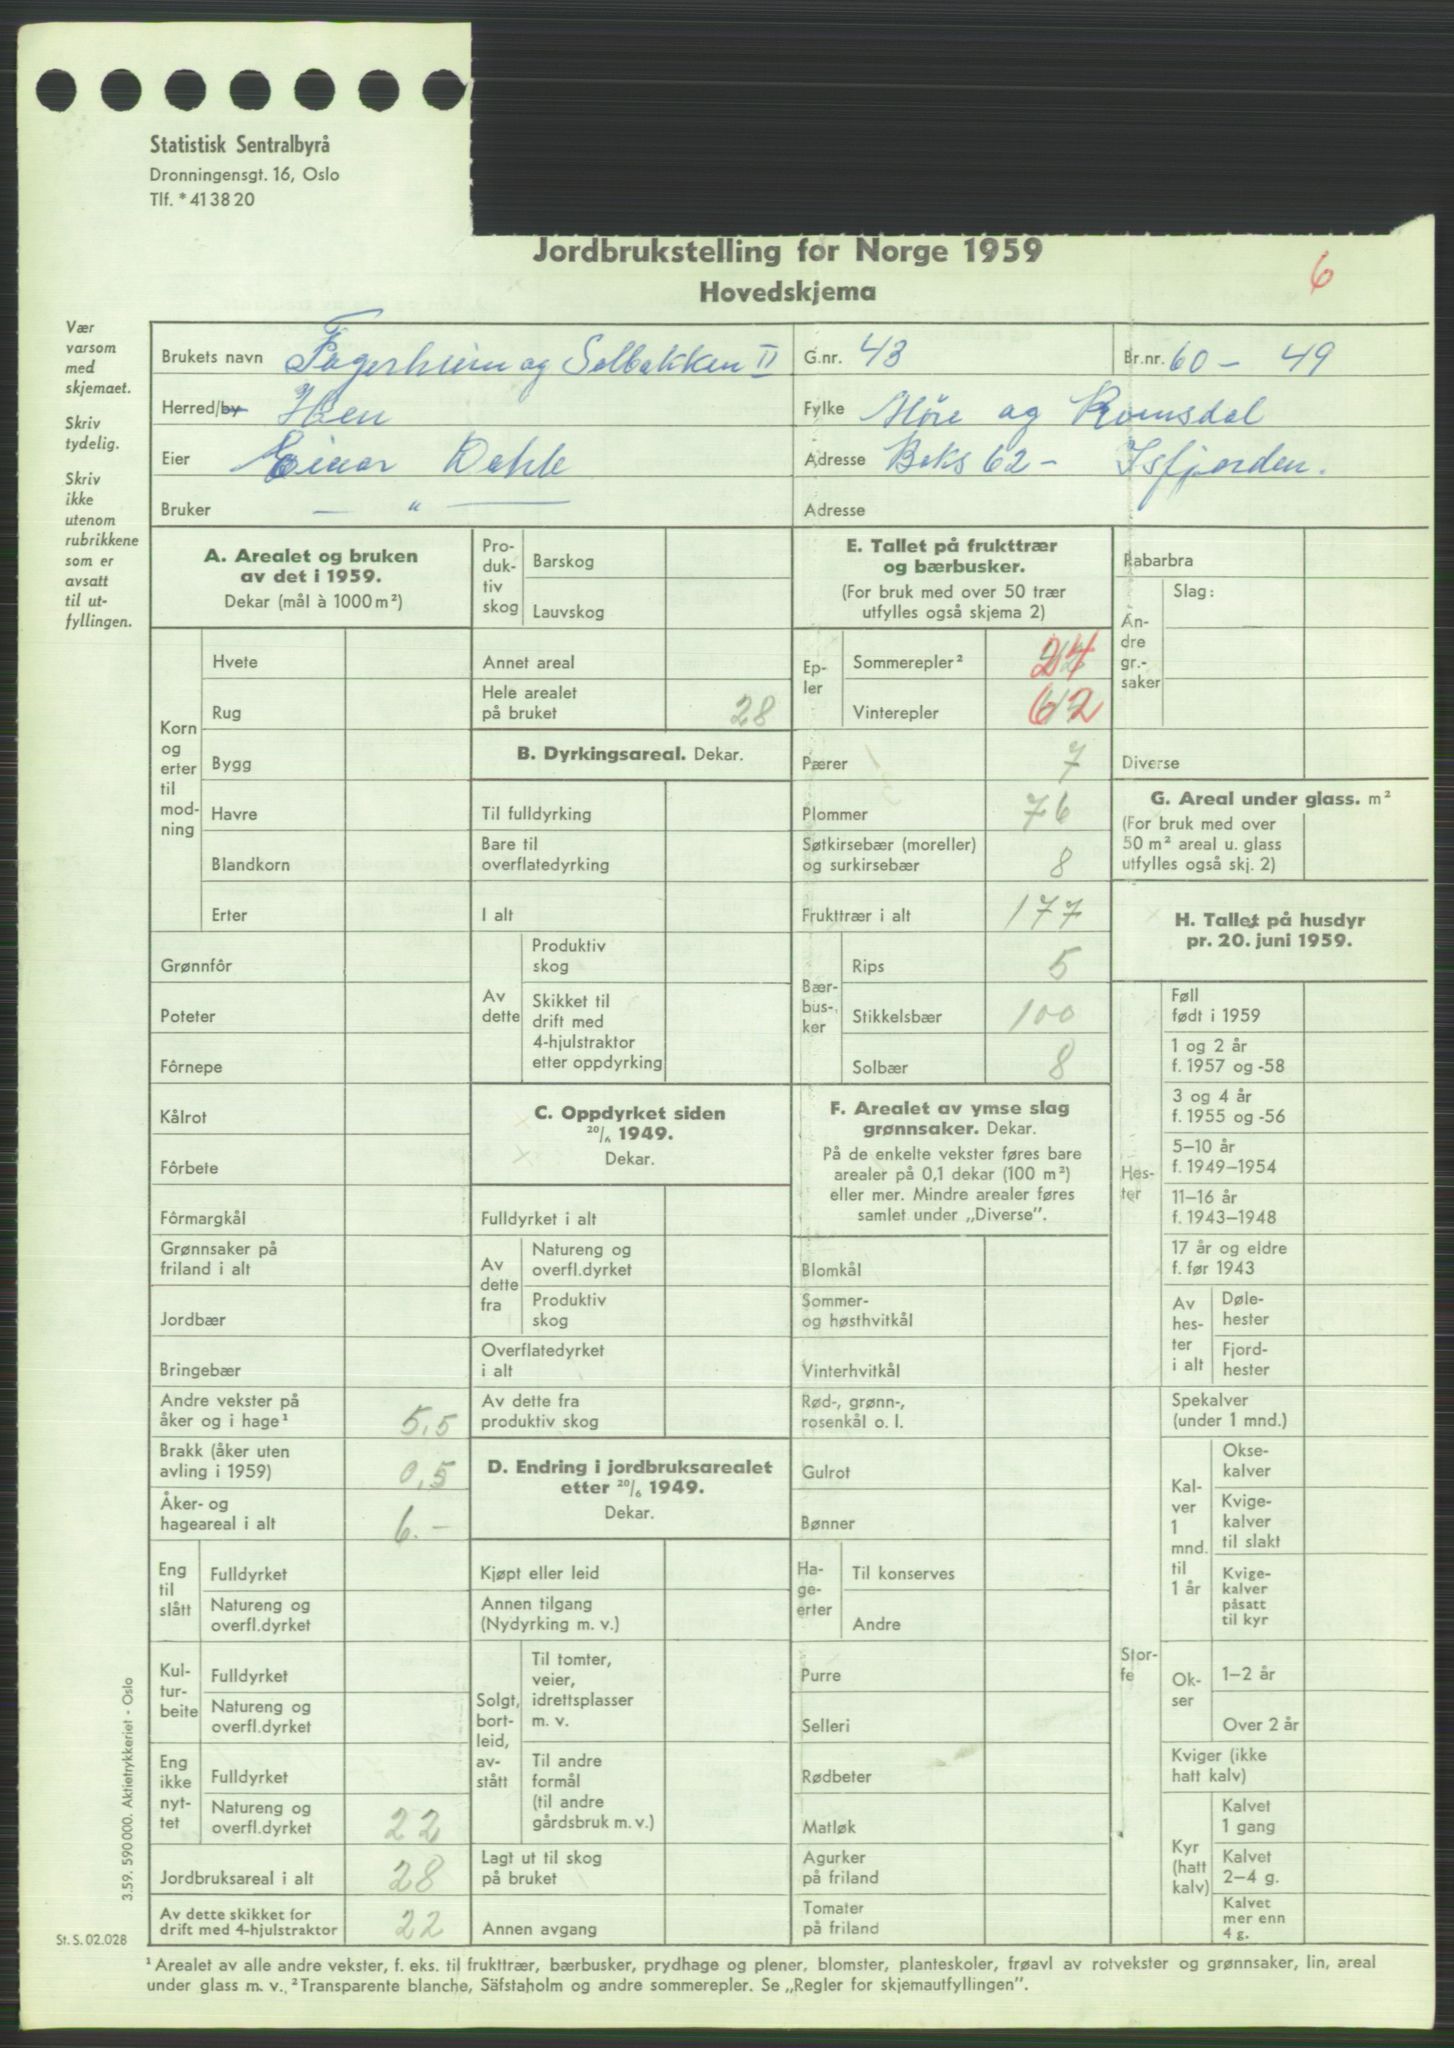 Statistisk Sentralbyrå
Dronningensgt. 16, Oslo
Tlf. * 41 38 20
Jordbrukstelling for Norge 1959
Hovedskjema
6
Vær
varsom
med
skjemaet.
Skriv
tydelig.
Skriv
ikke
utenom
rubrikkene
som er
avsatt
til ut-
fyllingen.
Brukets navn Fagerheim og Solbakken II G.nr. 43 Br.nr. 60 – 49
Herred/by Hen Fylke Møre og Romsdal
Eier Einar Dahle Adresse Boks 62 – Isfjorden.
Bruker — " — Adresse
A. Arealet og bruken
av det i 1959.
Dekar (mål à 1000 m²)
Korn
og
erter
til
mod-
ning
Hvete
Rug
Bygg
Havre
Blandkorn
Erter
Grønnfôr
Poteter
Fôrnepe
Kålrot
Fôrbete
Fôrmargkål
Grønnsaker på
friland i alt
Jordbær
Bringebær
Andre vekster på
åker og i hage¹ 5,5
Brakk (åker uten
avling i 1959) 0,5
Åker- og
hageareal i alt 6.–
Eng
til
slått
Fulldyrket
Natureng og
overfl.dyrket
Kul-
tur-
beite
Fulldyrket
Natureng og
overfl.dyrket
Eng
ikke
nyt-
tet
Fulldyrket
Natureng og
overfl.dyrket 22
Jordbruksareal i alt 28
Av dette skikket for
drift med 4-hjulstraktor 22
Pro-
duk-
tiv
skog
Barskog
Lauvskog
Annet areal
Hele arealet
på bruket 28
B. Dyrkingsareal. Dekar.
Til fulldyrking
Bare til
overflatedyrking
I alt
Av
dette
Produktiv
skog
Skikket til
drift med
4-hjulstraktor
etter oppdyrking
C. Oppdyrket siden
20/6 1949.
Dekar.
Fulldyrket i alt
Av
dette
fra
Natureng og
overfl.dyrket
Produktiv
skog
Overflatedyrket
i alt
Av dette fra
produktiv skog
D. Endring i jordbruksarealet
etter 20/6 1949.
Dekar.
Kjøpt eller leid
Annen tilgang
(Nydyrking m. v.)
Solgt,
bort-
leid,
av-
stått
Til tomter,
veier,
idrettsplasser
m. v.
Til andre
formål
(til andre
gårdsbruk m. v.)
Lagt ut til skog
på bruket
Annen avgang
E. Tallet på frukttrær
og bærbusker.
(For bruk med over 50 trær
utfylles også skjema 2)
Ep-
ler
Sommerepler² 24
Vinterepler 62
Pærer 7
Plommer 76
Søtkirsebær (moreller)
og surkirsebær 8
Frukttrær i alt 177
Bær-
bus-
ker
Rips 5
Stikkelsbær 100
Solbær 8
F. Arealet av ymse slag
grønnsaker. Dekar.
På de enkelte vekster føres bare
arealer på 0,1 dekar (100 m²)
eller mer. Mindre arealer føres
samlet under „Diverse”.
Blomkål
Sommer-
og høsthvitkål
Vinterhvitkål
Rød-, grønn-,
rosenkål o. l.
Gulrot
Bønner
Ha-
ge-
erter
Til konserves
Andre
Purre
Selleri
Rødbeter
Matløk
Agurker
på friland
Tomater
på friland
Rabarbra
An-
dre
gr.-
saker
Slag:
Diverse
G. Areal under glass. m²
(For bruk med over
50 m² areal u. glass
utfylles også skj. 2)
H. Tallet på husdyr
pr. 20. juni 1959.
Hes-
ter
Føll
født i 1959
1 og 2 år
f. 1957 og -58
3 og 4 år
f. 1955 og -56
5–10 år
f. 1949–1954
11–16 år
f. 1943–1948
17 år og eldre
f. før 1943
Av
hes-
ter
i alt
Døle-
hester
Fjord-
hester
Stor-
fe
Spekalver
(under 1 mnd.)
Kal-
ver
1
mnd.
til
1 år
Okse-
kalver
Kvige-
kalver
til slakt
Kvige-
kalver
påsatt
til kyr
Ok-
ser
1–2 år
Over 2 år
Kviger (ikke
hatt kalv)
Kyr
(hatt
kalv)
Kalvet
1 gang
Kalvet
2–4 g.
Kalvet
mer enn
4 g.
3.59. 590 000. Aktietrykkeriet - Oslo
St. S. 02.028
¹ Arealet av alle andre vekster, f. eks. til frukttrær, bærbusker, prydhage og plener, blomster, planteskoler, frøavl av rotvekster og grønnsaker, lin, areal
under glass m. v. ² Transparente blanche, Säfstaholm og andre sommerepler. Se „Regler for skjemautfyllingen”.